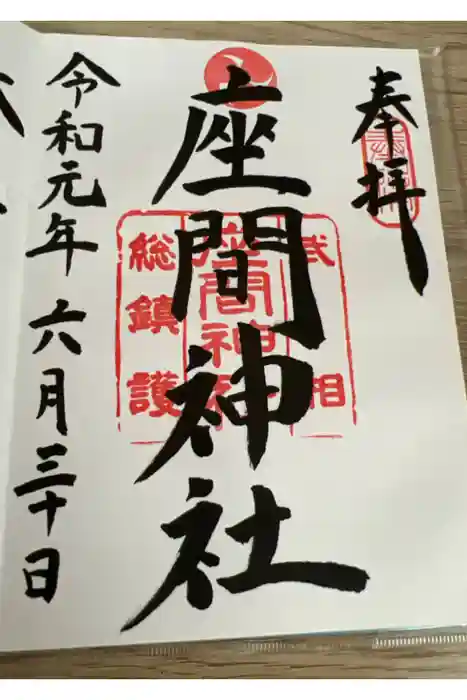 奉拝
座間神社
武相
座間神社
総鎮護
令和元年六月三十日